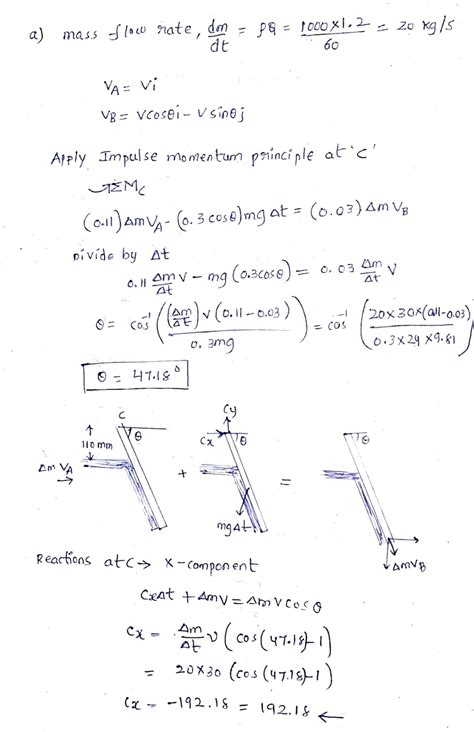 a) mass flow rate, dm/dt = ρQ = 1000×1.2/60 = 20 kg/s
VA = Vi
VB = Vcosθi - Vsinθj
Apply Impulse momentum principle at 'C'
ΣMC
(0.11)ΔmVA - (0.3cosθ)mgΔt = (0.03)ΔmVB
Divide by Δt
0.11 Δm/Δt V - mg(0.3cosθ) = 0.03 Δm/Δt V
θ = cos⁻¹((Δm/Δt)V(0.11-0.03)/0.3mg) = cos⁻¹(20×30×(0.11-0.03)/0.3×24×9.81)
θ = 47.18°
C θ 110 mm ΔmVA
+
Cy Cx θ mgΔt
=
θ ΔmVB
Reactions at C → X-component
CxΔt + ΔmV = ΔmVcosθ
Cx = Δm/Δt V (cos(47.18)-1)
= 20×30 (cos(47.18)-1)
Cx = -192.18 = 192.18 ←